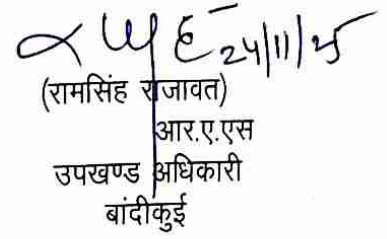 24/11/25
(रामसिंह राजावत)
आर.ए.एस
उपखण्ड अधिकारी
बांदीकुई